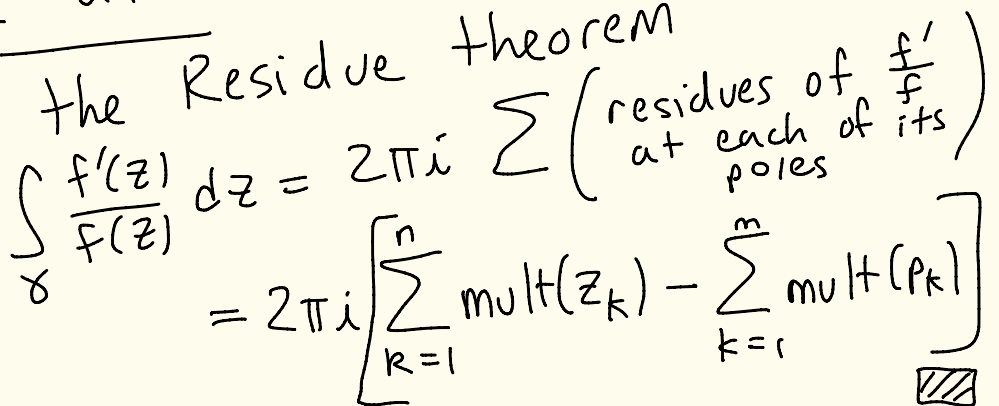 the Residue theorem
∫_γ f'(z)/f(z) dz = 2πi Σ (residues of f'/f at each of its poles)
= 2πi [Σ_{k=1}^{n} mult(z_k) − Σ_{k=1}^{m} mult(p_k)]